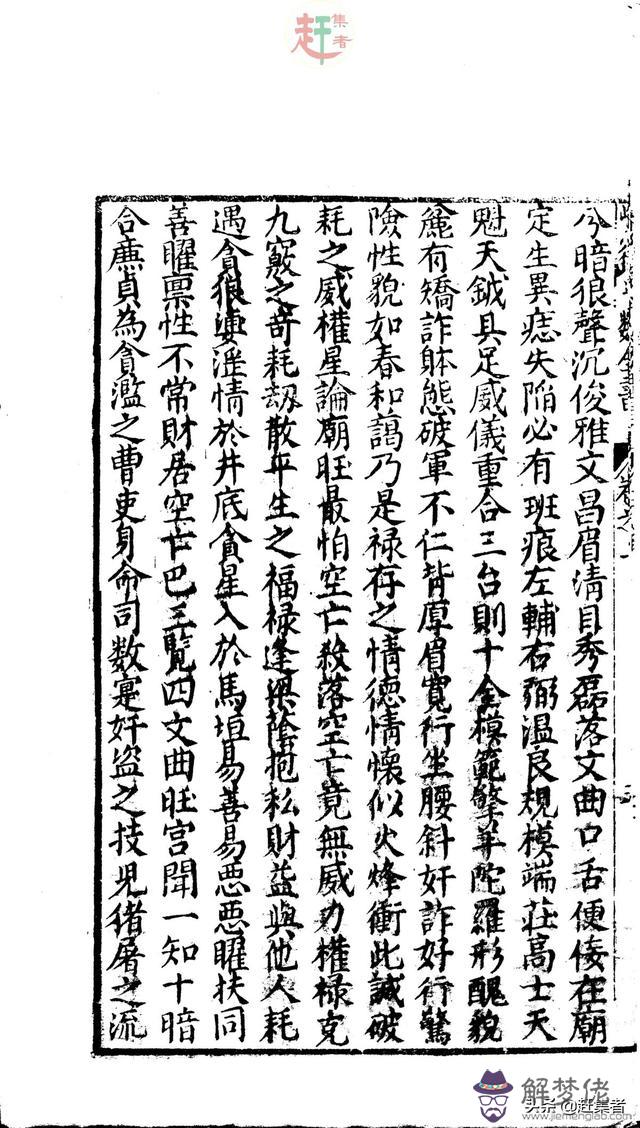 赶集者
兮暗很聲沉俊雅文昌眉清目秀磊落文曲口舌便佞在廟
定生異痣失陷必有班痕左輔右弼溫良規模端莊高士天
魁天鉞具足威儀重合三台則十全模範擎羊陀羅形醜貌
麄有矯詐躰態破軍不仁背厚眉寬行坐腰斜奸詐好行驚
險性貌如春和藹乃是禄存之情德情懷似火烽衝此誠破
耗之威權星論廟旺最怕空亡殺落空亡竟無威力權禄克
九竅之奇耗刼散平生之福禄逢梁蔭抱私財益與他人耗
遇貪狼婬滛情於井底貪星入於馬垣易善易惡惡曜扶同
善曜禀性不常財居空亡巴三覽四文曲旺宫聞一知十暗
合廉貞為貪濫之曹吏身命司数寔奸盗之技児猪屠之流
解梦佬
头条 @赶集者